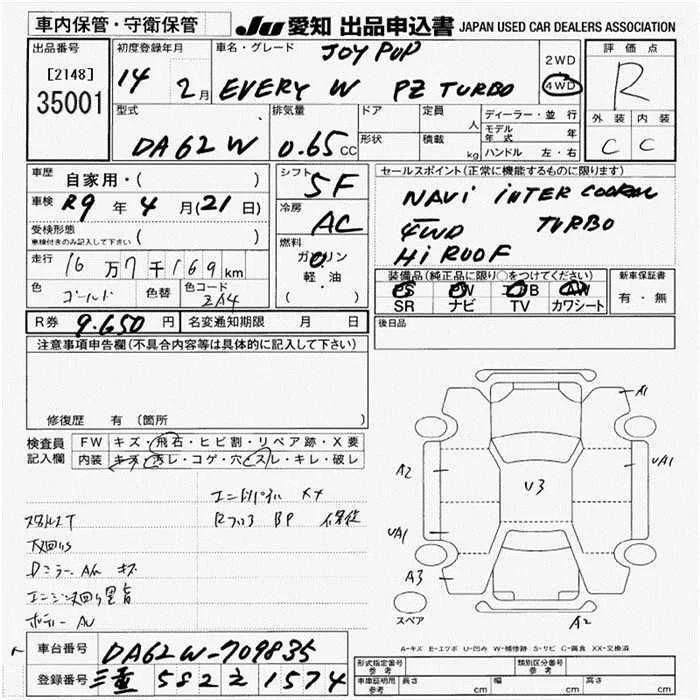 車内保管・守衛保管
JU 愛知 出品申込書 JAPAN USED CAR DEALERS ASSOCIATION
出品番号
[2148]
35001
初度登録年月
14 2月
車名・グレード
JOY POP
EVERY W PZ TURBO
2WD
4WD
評価点
R
外装 内装
C C
型式
DA62W
排気量
0.65 CC
ドア
定員
人
形状
積載
kg
ディーラー・並行
モデル年式 年
ハンドル 左・右
車歴
自家用・( )
車検 R9 年 4 月 (21 日)
受検形態
車検付きのみ記入して下さい ( )
走行 16 万 7 千 169 km
色 ゴールド 色替 色コード ZA4
シフト 5F
冷房 AC
燃料
ガソリン
軽・油
( )
セールスポイント(正常に機能するものに限ります)
NAVI INTER COOLER
4WD TURBO
Hi ROOF
装備品(純正品に限り○をつけてください)
PS PW エアB AW
SR ナビ TV カワシート
新車保証書
有・無
R券 9.650 円 名変通知期限 月 日
後日品
注意事項申告欄(不具合内容等は具体的に記入して下さい)
修復歴 有 (箇所 )
検査員記入欄
FW キズ・飛石・ヒビ割・リペア跡・X要
内装 キズ・汚レ・コゲ・穴・スレ・キレ・破レ
下回りS
エンジン下回り
ボデー AU
A1
A2
UA1
U3
UA1
A3
A2
スペア
A-キズ E-エクボ U-凹み W-補修跡 S-サビ C-腐食 XX-交換済
車台番号 DA62W-709835
登録番号 三重 582 え 1574
形式指定番号 参考
類別区分番号 参考
車庫証明用 参考 長さ cm 幅 cm 高さ cm